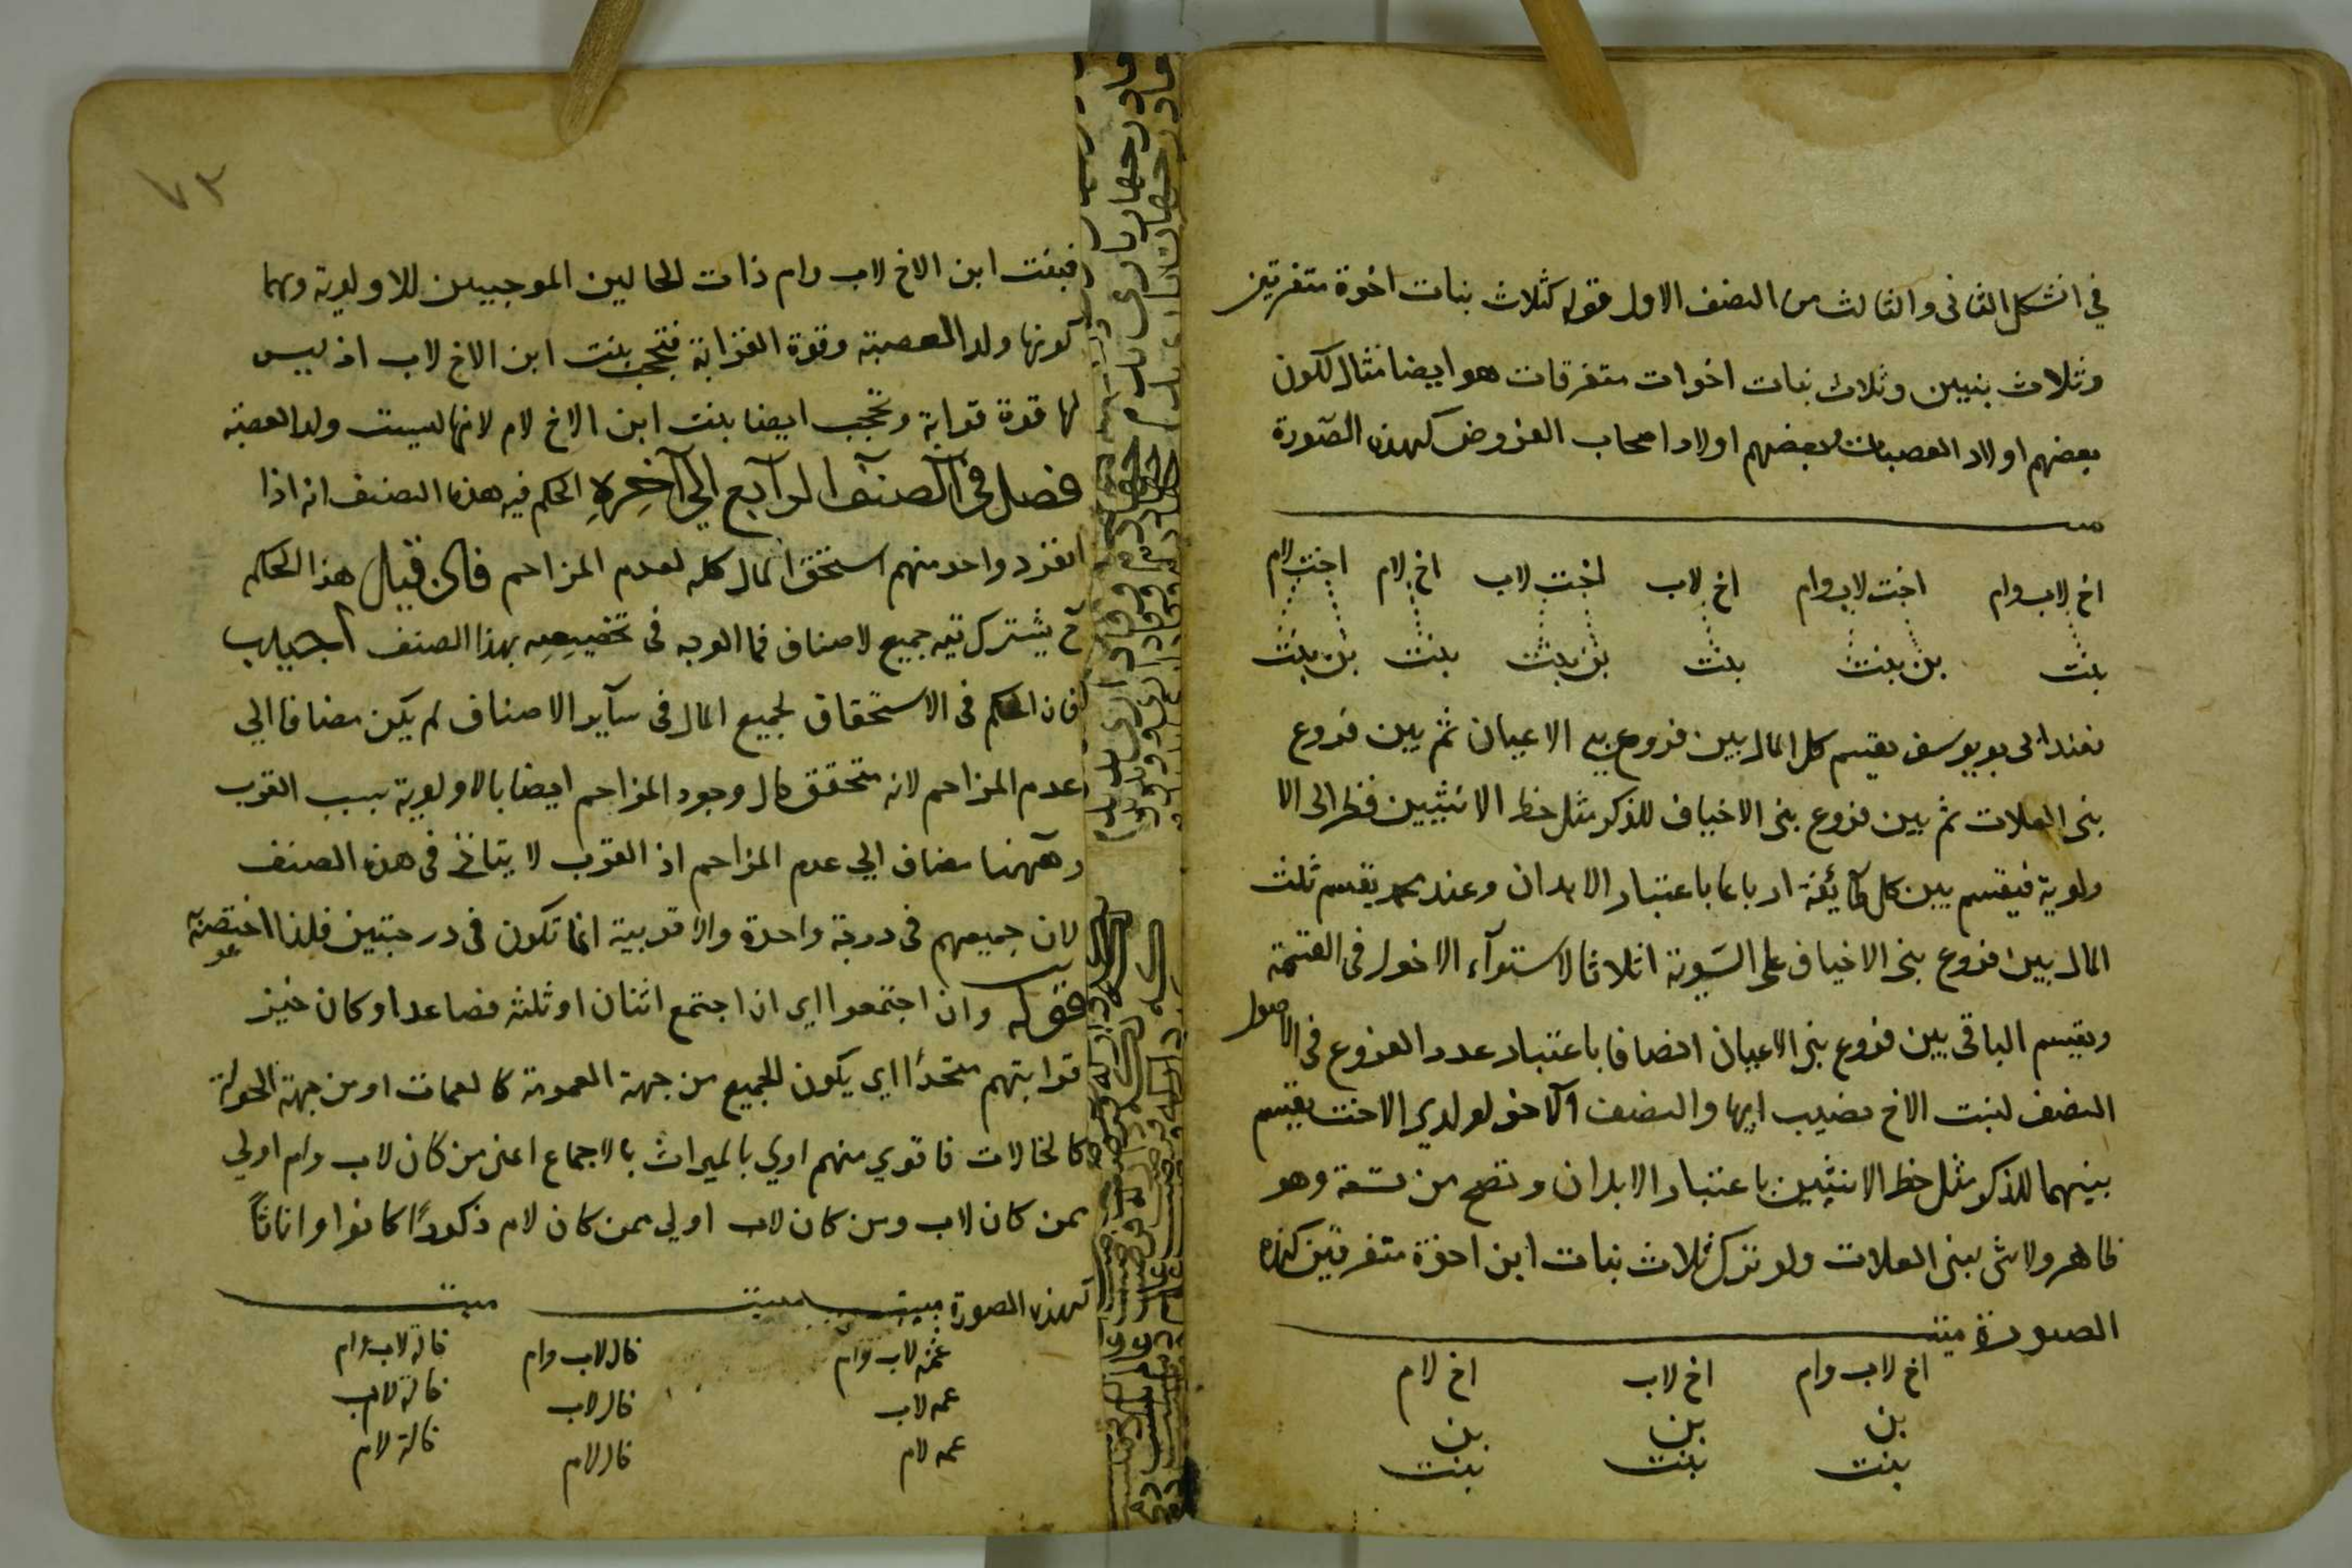 في الشكل الثانى والثالث من الصنف الاول قوله كثلاث بنات اخوة متفرقين
وثلاث بنيين وثلاث بنات اخوات متفرقات هو ايضا مثال لكون
بعضهم اولاد العصبات وبعضهم اولاد اصحاب الفروض كهذه الصورة
اخ لاب وام اخت لاب وام اخ لاب اخت لاب اخ لام اخت لام
بنت بن بنت بنت بن بنت بنت بن بنت
فعند ابى يوسف يقسم كل المال بين فروع بنى الاعيان ثم بين فروع
بنى العلات ثم بين فروع بنى الاخياف للذكر مثل حظ الانثيين نظرا الى الا
ولوية فيقسم بين كل طآئفة ارباعا باعتبار الابدان وعند محمد يقسم ثلث
المال بين فروع بنى الاخياف على السوية اثلاثا لاستوآء الاصول فى القسمة
ويقسم الباقى بين فروع بنى الاعيان انصافا باعتبار عدد الفروع فى الاصول
النصف لبنت الاخ نصيب ابيها والنصف الآخر لولدي الاخت يقسم
بينهما للذكر مثل حظ الانثيين باعتبار الابدان وتصح من تسعة وهو
ظاهر ولا شى لبنى العلات ولو ترك ثلاث بنات ابن اخوة متفرقين كهذه
الصورة ميت
اخ لاب وام اخ لاب اخ لام
بن بن بن
بنت بنت بنت
٧٣
فبنت ابن الاخ لاب وام ذات الحالين الموجبين للاولوية وهما
كونها ولد العصبة وقوة القرابة فتحجب بنت ابن الاخ لاب اذ ليس
لها قوة قرابة وتحجب ايضا بنت ابن الاخ لام لانها ليست ولد العصبة
فصل فى الصنف الرابع الى آخره الحكم فيه هذه الصنف انه اذا
انفرد واحد منهم استحق المال كله لعدم المزاحم فان قيل هذا الحكم
ح يشترك فيه جميع لاصناف فما الوجه فى تخصيصه بهذا الصنف اجيب
فان الحكم فى الاستحقاق لجميع المال فى سآير الاصناف لم يكن مضافا الى
عدم المزاحم لانه متحقق حال وجود المزاحم ايضا بالاولوية بسبب القرب
وههنا مضاف الى عدم المزاحم اذ القرب لا يتاتى فى هذه الصنف
لان جميعهم فى درجة واحدة والاقربية انما تكون فى درجتين فلذا اختصه
قوله وان اجتمعوا اى ان اجتمع اثنان او ثلثه فصاعدا وكان حيز
قرابتهم متحدًا اى يكون للجميع من جهة العمومة كالعمات او من جهة الخولة
كالخالات فاقوى منهم اولى بالميراث بالاجماع اعنى من كان لاب وام اولى
ممن كان لاب ومن كان لاب اولى ممن كان لام ذكورًا كانوا او اناثًا
كهذه الصورة ميت ميت ميت
عمه لاب وام خال لاب وام خالة لاب وام
عمه لاب خال لاب خالة لاب
عمه لام خال لام خالة لام